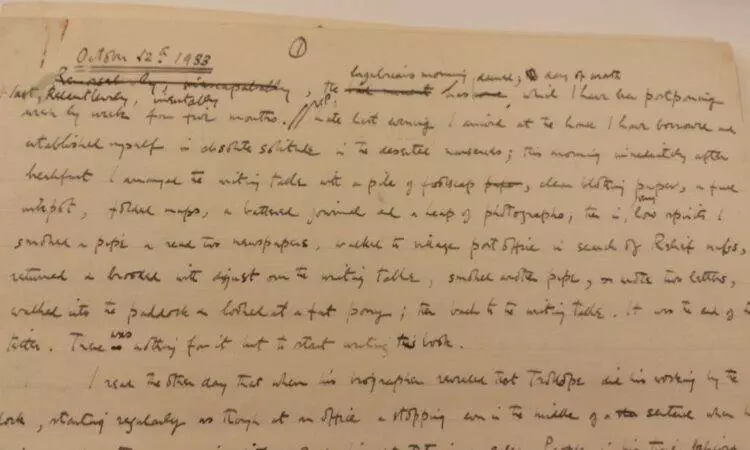 ①
October 12th 1933
lugubrious morning dawned; day of wrath
last, Relentlessly, inevitably, the has, which I have been postponing
week by week for five months. Late last evening I arrived at the house I have borrowed and
established myself in absolute solitude in the deserted nurseries; this morning immediately after
breakfast I arranged the writing table with a pile of foolscap paper, clean blotting paper, a full
inkpot, folded maps, a battered journal and a heap of photographs; then in very low spirits I
smoked a pipe & read two newspapers, walked to village post office in search of Relief nibs,
returned & brooded with disgust over the writing table, smoked another pipe, & wrote two letters,
walked into the paddock & looked at a fat pony; then back to the writing table. It was the end of the
tether. There was nothing for it but to start writing this book.
I read the other day that when his biographer revealed that Trollope did his working by the
clock, starting regularly as though at an office & stopping even in the middle of a sentence when